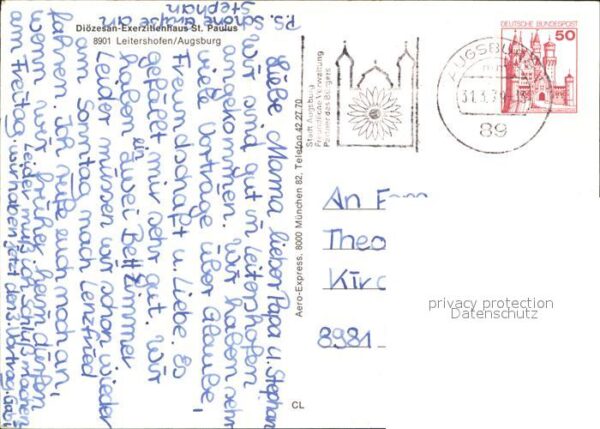 Diözesan-Exerzitienhaus St. Paulus
8901 Leitershofen/Augsburg
P.S. Schöne Grüße an
Stephan
Liebe Mama lieber Papa u. Stephan
Wir sind gut in Leitershofen
angekommen. Wir haben sehr
viele Vorträge über Glaube,
Freundschaft u. Liebe. Es
gefällt mir sehr gut. Wir
haben ein zwei Bettzimmer
Leider müssen wir schon wieder
am Sonntag nach Lenzfried
fahren. Ich rufe euch noch an,
wenn wir früher heimdürfen
am Freitag. Leider muß ich Schluß machen
wir haben jetzt den 3. Vortrag. Gabi
Aero-Express, 8000 München 82, Telefon 42 27 70
CL
Stadt Augsburg
Freundliche Verwaltung
Partner des Bürgers
AUGSBURG
31.3.79
89
DEUTSCHE BUNDESPOST
50
An F
Theo
Kirc
8981
privacy protection
Datenschutz